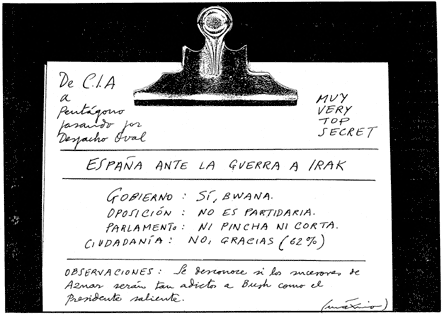 De C.I.A
a
Pentágono
pasando por
Despacho Oval
MUY
VERY
TOP
SECRET
ESPAÑA ANTE LA GUERRA A IRAK
GOBIERNO: SÍ, BWANA.
OPOSICIÓN: NO ES PARTIDARIA.
PARLAMENTO: NI PINCHA NI CORTA.
CIUDADANÍA: NO, GRACIAS (62%)
OBSERVACIONES: Se desconoce si los sucesores de
Aznar serán tan adictos a Bush como el
Presidente saliente.
(máximo)